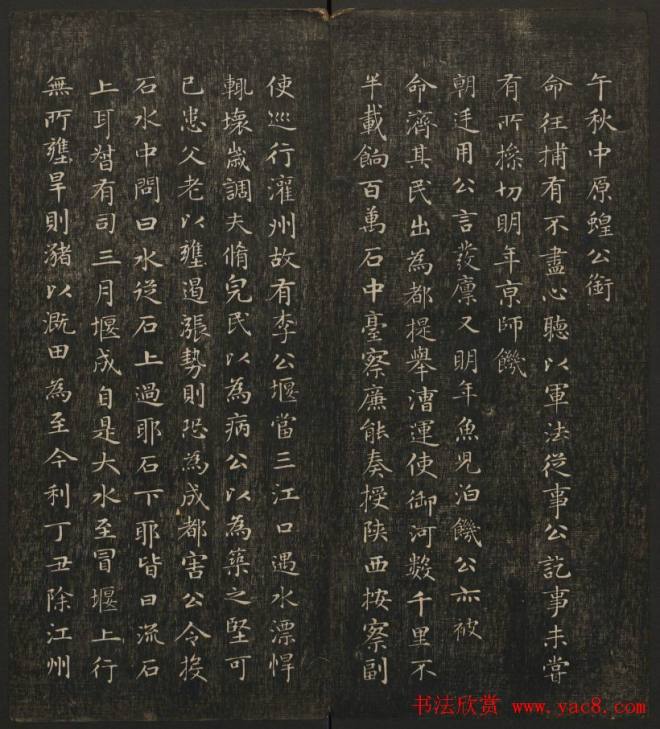 午秋中原蝗公銜
命往捕有不盡心聽以軍法從事公訖事未嘗
有所搽切明年京師饑
朝廷用公言發廪又明年魚兒泊饑公亦被
命濟其民出為都提舉漕運使御河數千里不
半載餉百萬石中臺察廉能奏授陝西按察副
使巡行灌州故有李公堰當三江口遇水漂悍
輒壞歲調夫脩完民以為病公以為築之堅可
已患父老以壅遏漲勢則恐為成都害公令投
石水中問曰水從石上過耶石下耶皆曰流石
上耳督有司三月堰成自是大水至冒堰上行
無所壅旱則瀦以溉田為至今利丁丑除江州
书法欣赏 www.yac8.com